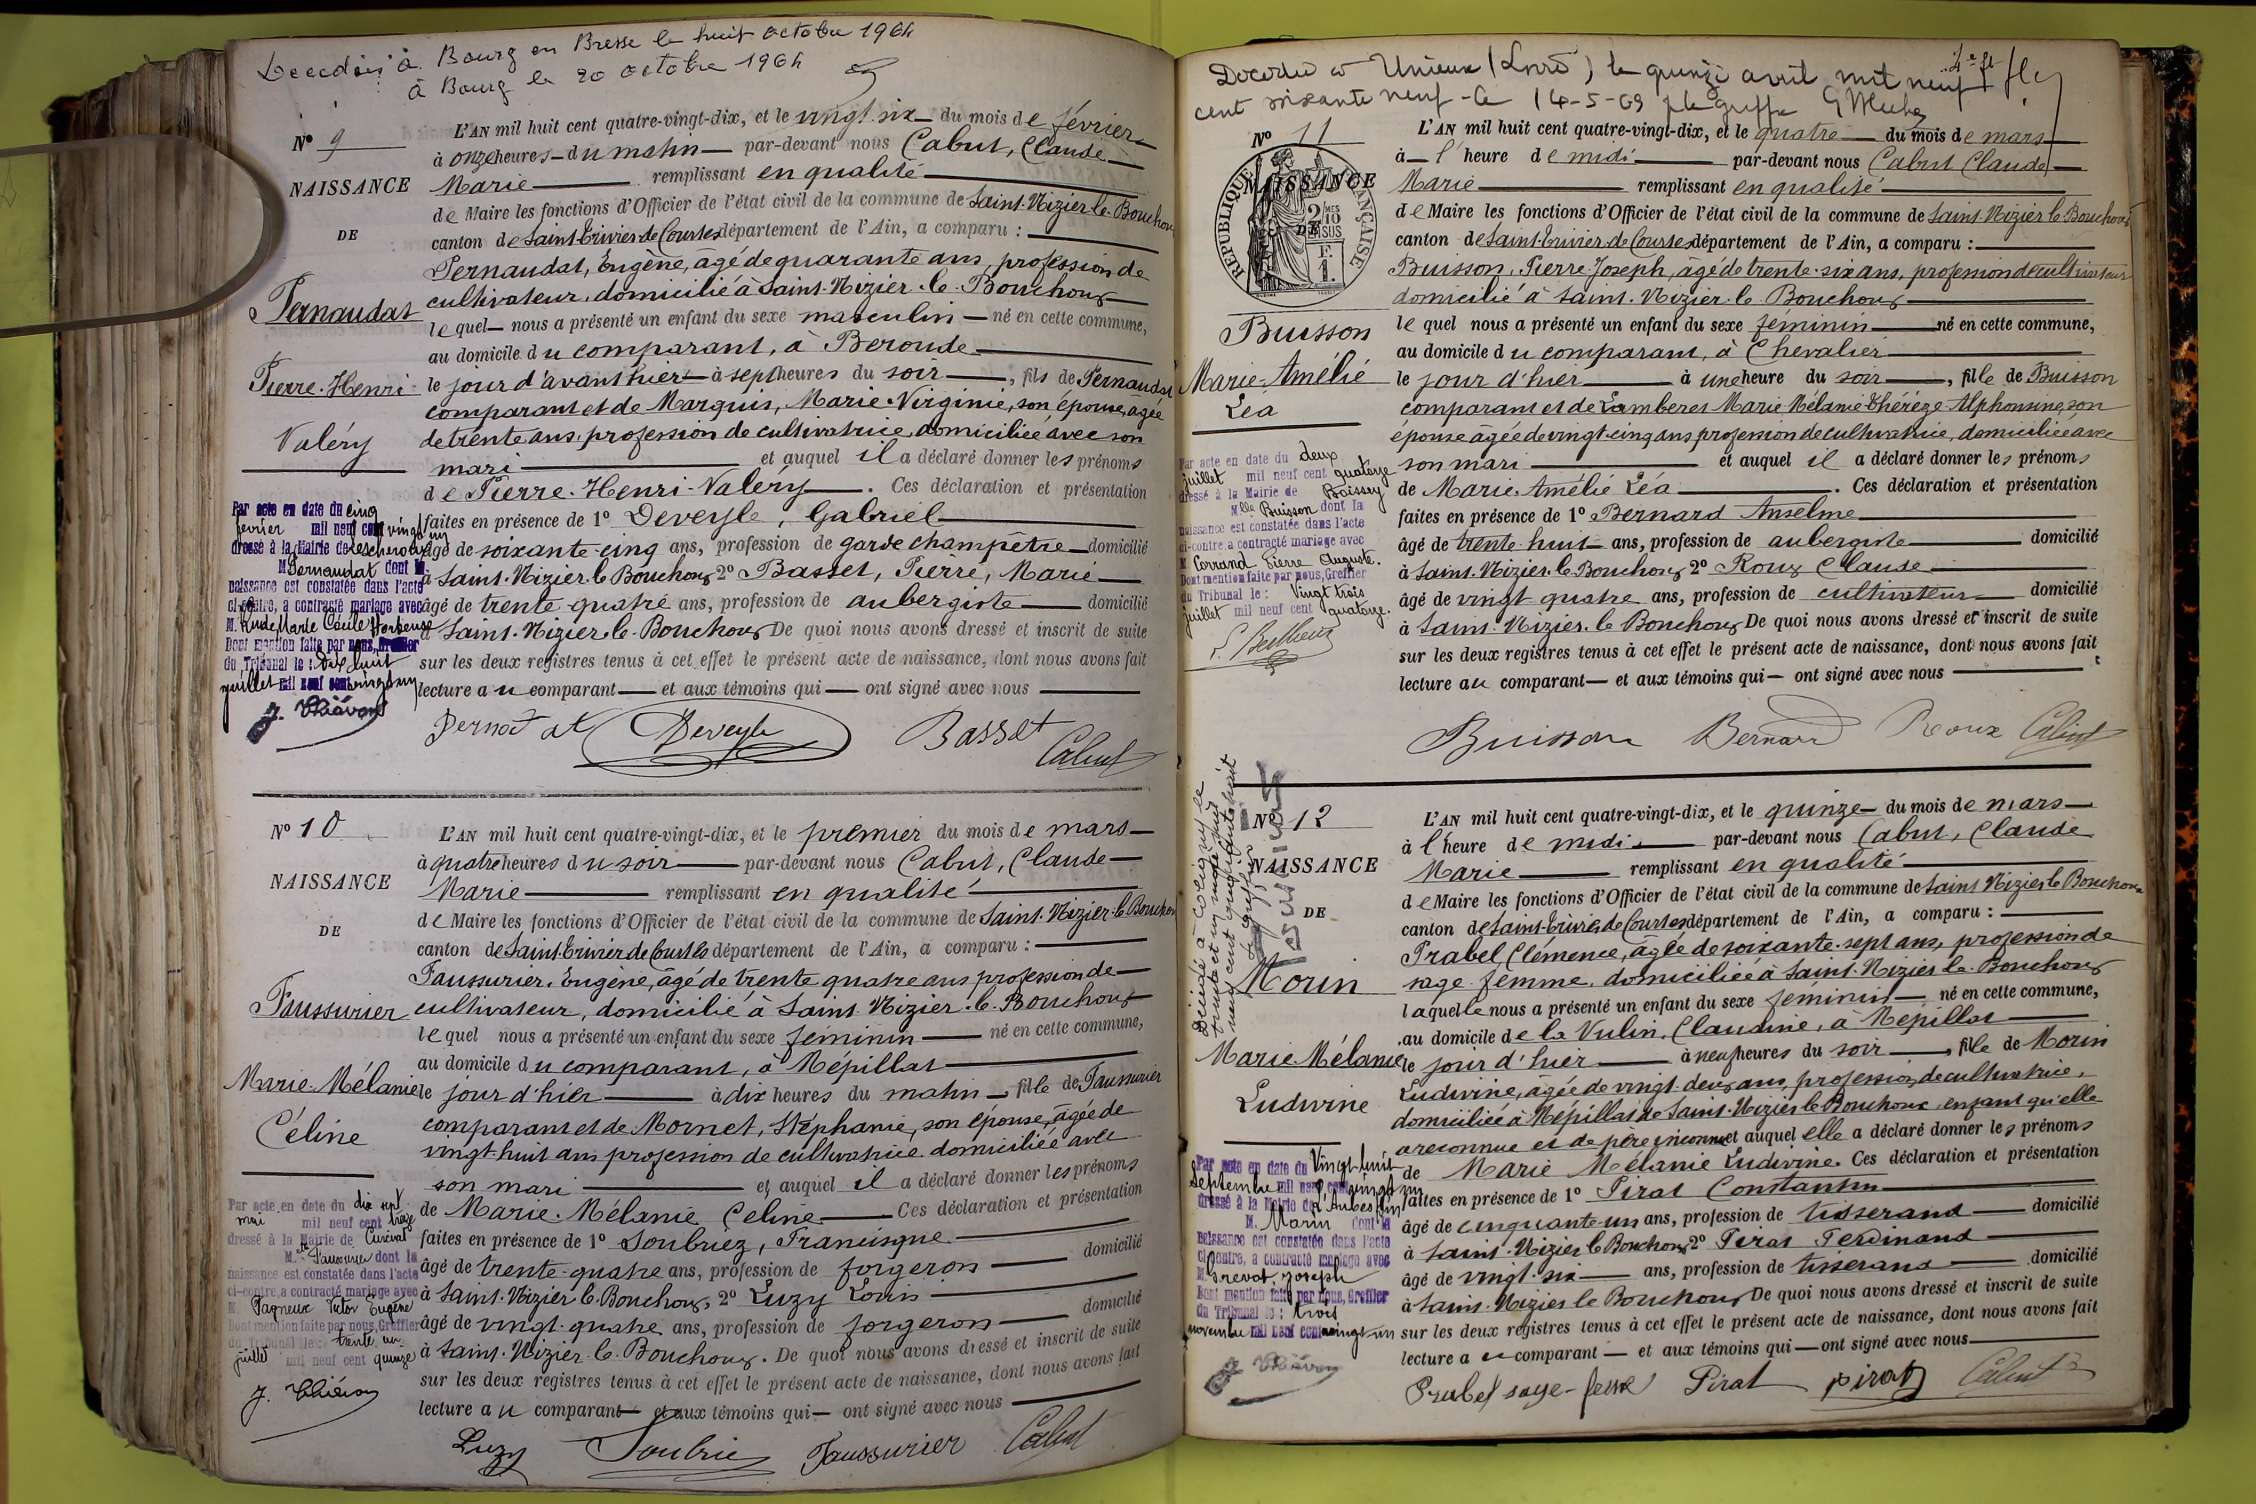 Décédé à Bourg en Bresse le huit octobre 1964
à Bourg le 20 octobre 1964
N° 9
NAISSANCE
DE
Pernaudat
Pierre-Henri
Valéry
L'AN mil huit cent quatre-vingt-dix, et le vingt six du mois de février
à onze heures du matin par-devant nous Cabut, Claude
Marie remplissant en qualité
de Maire les fonctions d'Officier de l'état civil de la commune de Saint-Nizier-le-Bouchoux
canton de Saint-Trivier-de-Courtes département de l'Ain, a comparu :
Pernaudat, Eugène, âgé de quarante ans, profession de
cultivateur, domicilié à Saint-Nizier-le-Bouchoux
lequel nous a présenté un enfant du sexe masculin né en cette commune,
au domicile du comparant, à Beroude
le jour d'avant hier à sept heures du soir, fils de Pernaudat
comparant et de Marquis, Marie-Virginie, son épouse, âgée
de trente ans, profession de cultivatrice, domiciliée avec son
mari et auquel il a déclaré donner les prénoms
de Pierre-Henri-Valéry. Ces déclaration et présentation
faites en présence de 1° Deveyle, Gabriel
âgé de soixante-cinq ans, profession de garde champêtre domicilié
à Saint-Nizier-le-Bouchoux 2° Basset, Pierre, Marie
âgé de trente-quatre ans, profession de aubergiste domicilié
à Saint-Nizier-le-Bouchoux De quoi nous avons dressé et inscrit de suite
sur les deux registres tenus à cet effet le présent acte de naissance, dont nous avons fait
lecture au comparant et aux témoins qui ont signé avec nous
Par acte en date du cinq
février mil neuf cent vingt un
dressé à la Mairie de Lescheroux
M. Pernaudat dont la
naissance est constatée dans l'acte
ci-contre, a contracté mariage avec
M. Rude Marie Cécile Hortense
Dont mention faite par nous, Greffier
du Tribunal le : Dix huit
juillet mil neuf cent vingt un
J. Thiévon
Pernodat Deveyle Basset Cabut
N° 10
NAISSANCE
DE
Faussurier
Marie-Mélanie
Céline
L'AN mil huit cent quatre-vingt-dix, et le premier du mois de mars
à quatre heures du soir par-devant nous Cabut, Claude
Marie remplissant en qualité
de Maire les fonctions d'Officier de l'état civil de la commune de Saint-Nizier-le-Bouchoux
canton de Saint-Trivier de Courtes département de l'Ain, a comparu :
Faussurier, Eugène, âgé de trente quatre ans profession de
cultivateur, domicilié à Saint-Nizier-le-Bouchoux
lequel nous a présenté un enfant du sexe féminin né en cette commune,
au domicile du comparant, à Népillat
le jour d'hier à dix heures du matin fille de Faussurier
comparant et de Mornet, Stéphanie, son épouse, âgée de
vingt-huit ans profession de cultivatrice domiciliée avec
son mari et auquel il a déclaré donner les prénoms
de Marie-Mélanie Céline. Ces déclaration et présentation
faites en présence de 1° Soubriez, Francisque
âgé de trente-quatre ans, profession de forgeron domicilié
à Saint-Nizier-le-Bouchoux, 2° Luzy Louis
âgé de vingt-quatre ans, profession de forgeron domicilié
à Saint-Nizier-le-Bouchoux. De quoi nous avons dressé et inscrit de suite
sur les deux registres tenus à cet effet le présent acte de naissance, dont nous avons fait
lecture au comparant et aux témoins qui ont signé avec nous
Par acte en date du dix sept
mai mil neuf cent treize
dressé à la Mairie de Curciat
M. elle Faussurier dont la
naissance est constatée dans l'acte
ci-contre, a contracté mariage avec
M. Pagneux Victor Eugène
Dont mention faite par nous, Greffier
du Tribunal le : trente un
juillet mil neuf cent quinze
J. Thiévon
Luzy Soubrie Faussurier Cabut
Décédée à Unieux (Loire) le quinze avril mil neuf
cent soixante neuf - Le 14-5-69 p. le greffe
N° 11
NAISSANCE
DE
RÉPUBLIQUE FRANÇAISE
2/10MES
EN SUS
1 F.
Buisson
Marie-Amélie
Léa
L'AN mil huit cent quatre-vingt-dix, et le quatre du mois de mars
à l'heure de midi par-devant nous Cabut Claude
Marie remplissant en qualité
de Maire les fonctions d'Officier de l'état civil de la commune de Saint-Nizier le Bouchoux
canton de Saint-Trivier-de-Courtes département de l'Ain, a comparu :
Buisson, Pierre Joseph, âgé de trente-six ans, profession de cultivateur
domicilié à Saint-Nizier-le-Bouchoux
lequel nous a présenté un enfant du sexe féminin né en cette commune,
au domicile du comparant, à Chevalier
le jour d'hier à une heure du soir, fille de Buisson
comparant et de Lamberet Marie Mélanie Thérèze Alphonsine, son
épouse âgée de vingt-cinq ans profession de cultivatrice, domiciliée avec
son mari et auquel il a déclaré donner les prénoms
de Marie Amélie Léa. Ces déclaration et présentation
faites en présence de 1° Bernard Anselme
âgé de trente-huit ans, profession de aubergiste domicilié
à Saint-Nizier-le-Bouchoux 2° Roux Claude
âgé de vingt quatre ans, profession de cultivateur domicilié
à Saint-Nizier-le-Bouchoux De quoi nous avons dressé et inscrit de suite
sur les deux registres tenus à cet effet le présent acte de naissance, dont nous avons fait
lecture au comparant et aux témoins qui ont signé avec nous
Par acte en date du deux
juillet mil neuf cent quatorze
dressé à la Mairie de Boissey
Mlle Buisson dont la
naissance est constatée dans l'acte
ci-contre a contracté mariage avec
M. Ferrand Pierre Auguste.
Dont mention faite par nous, Greffier
du Tribunal le : Vingt trois
juillet mil neuf cent quatorze.
Buisson Bernard Roux Cabut
N° 12
NAISSANCE
DE
Morin
Marie-Mélanie
Ludivine
Décédée à Coligny le
trente et un mai mil
neuf cent cinquante huit
L'AN mil huit cent quatre-vingt-dix, et le quinze du mois de mars
à l'heure de midi par-devant nous Cabut, Claude
Marie remplissant en qualité
de Maire les fonctions d'Officier de l'état civil de la commune de Saint Nizier le Bouchoux
canton de Saint-Trivier de Courtes département de l'Ain, a comparu :
Prabel, Clémence, âgée de soixante-sept ans, profession de
sage-femme, domiciliée à Saint-Nizier le Bouchoux
laquelle nous a présenté un enfant du sexe féminin né en cette commune,
au domicile de la Vulin, Claudine, à Népillat
le jour d'hier à neuf heures du soir, fille de Morin
Ludivine, âgée de vingt-deux ans, profession de cultivatrice,
domiciliée à Népillat de Saint-Nizier le Bouchoux enfant qu'elle
a reconnue et de père inconnu et auquel elle a déclaré donner les prénoms
de Marie Mélanie Ludivine. Ces déclaration et présentation
faites en présence de 1° Pirat Constantin
âgé de cinquante-un ans, profession de tisserand domicilié
à Saint-Nizier le Bouchoux 2° Pirat Ferdinand
âgé de vingt-six ans, profession de tisserand domicilié
à Saint-Nizier le Bouchoux De quoi nous avons dressé et inscrit de suite
sur les deux registres tenus à cet effet le présent acte de naissance, dont nous avons fait
lecture au comparant et aux témoins qui ont signé avec nous
Par acte en date du Vingt-huit
Septembre mil neuf cent vingt un
dressé à la Mairie de l'Aubépin
M. Morin dont la
naissance est constatée dans l'acte
ci-contre, a contracté mariage avec
M. Grevat Joseph
Dont mention faite par nous, Greffier
du Tribunal le : trois
novembre mil neuf cent vingt-un
J. Thiévon
Prabel sage-femme Pirat pirat Cabut